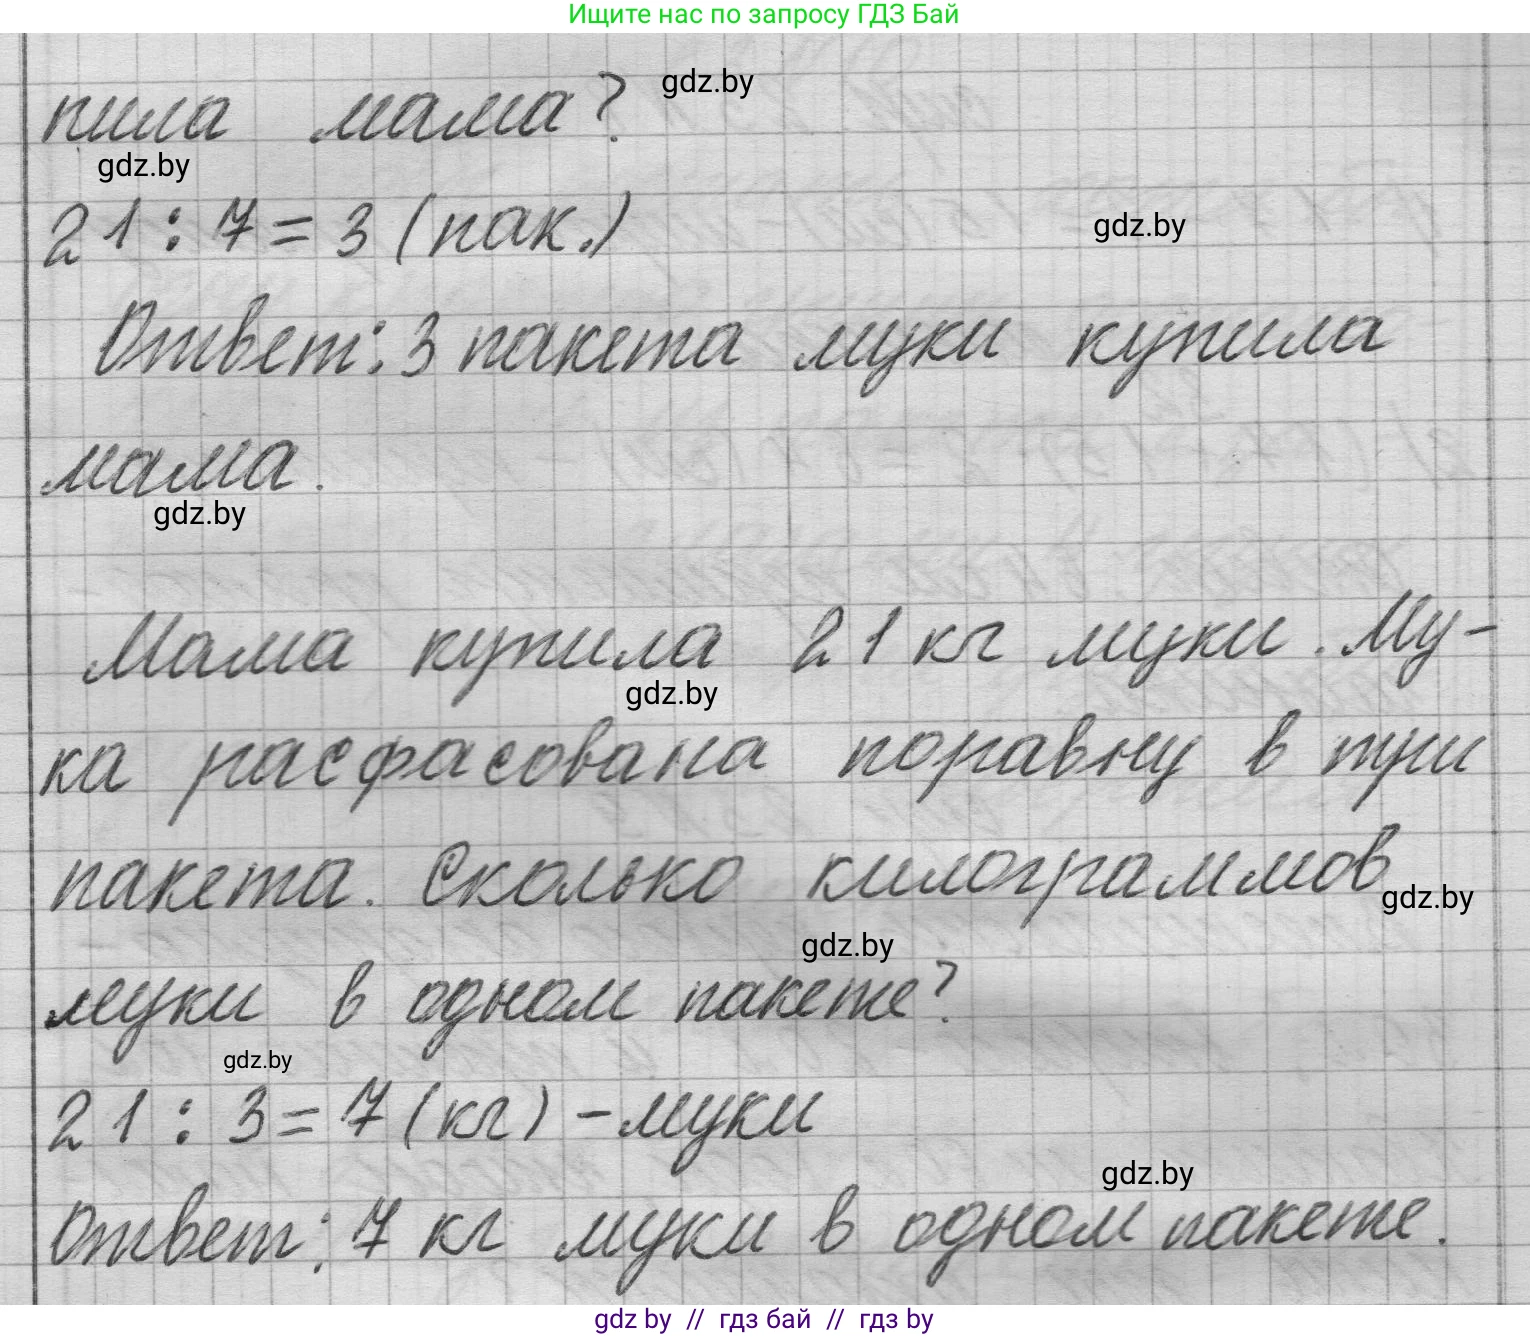 Ищите нас по запросу ГДЗ Бай
gdz.by
пила мама?
gdz.by
21 : 7 = 3 (пак.)
gdz.by
Ответ: 3 пакета муки купила
мама.
gdz.by
Мама купила 21 кг муки. Му-
gdz.by
ка расфасована поравну в три
пакета. Сколько килограммов
gdz.by
gdz.by
муки в одном пакете?
gdz.by
21 : 3 = 7 (кг) - муки
gdz.by
Ответ: 7 кг муки в одном пакете.
gdz by // гдз бай // гдз by